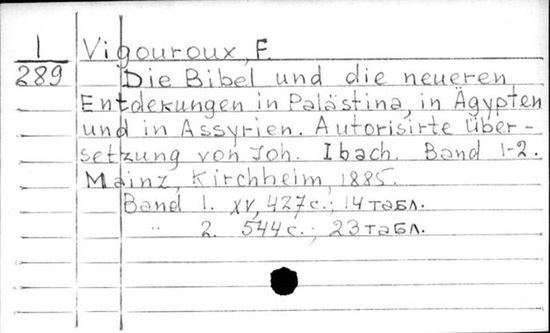 1 Vigouroux, F.
289 Die Bibel und die neueren
Entdekungen in Palästina, in Ägypten
und in Assyrien. Autorisirte Über-
setzung von Joh. Ibach. Band 1-2.
Mainz, Kirchheim, 1885.
Band 1. XV, 427 с.; 14 табл.
" 2. 544 с.; 23 табл.